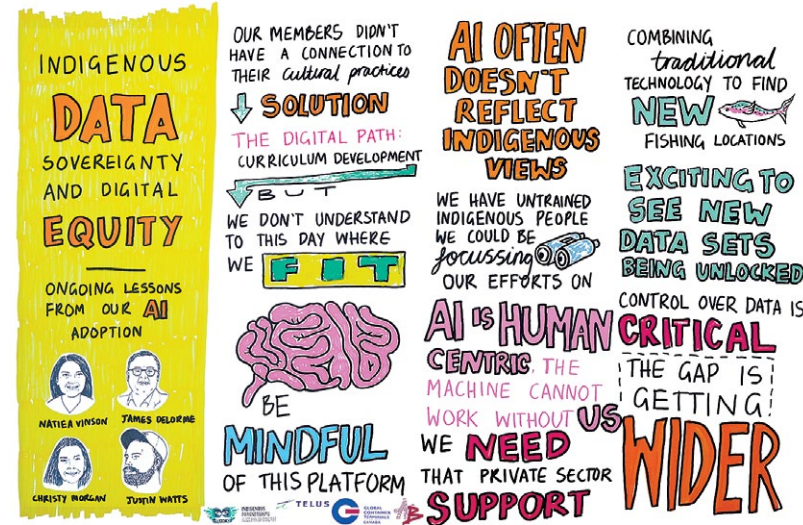 INDIGENOUS
DATA
SOVEREIGNTY
AND DIGITAL
EQUITY
ONGOING LESSONS
FROM OUR AI
ADOPTION
NATIEA VINSON
JAMES DELORME
CHRISTY MORGAN
JUSTIN WATTS
OUR MEMBERS DIDN'T
HAVE A CONNECTION TO
THEIR cultural practices
SOLUTION
THE DIGITAL PATH:
CURRICULUM DEVELOPMENT
BUT
WE DON'T UNDERSTAND
TO THIS DAY WHERE
WE FIT
BE
MINDFUL
OF THIS PLATFORM
AI OFTEN
DOESN'T
REFLECT
INDIGENOUS
VIEWS
WE HAVE UNTRAINED
INDIGENOUS PEOPLE
WE COULD BE
focussing
OUR EFFORTS ON
AI IS HUMAN
CENTRIC, THE
MACHINE CANNOT
WORK WITHOUT US
WE NEED
THAT PRIVATE SECTOR
SUPPORT
COMBINING
traditional
TECHNOLOGY TO FIND
NEW
FISHING LOCATIONS
EXCITING TO
SEE NEW
DATA SETS
BEING UNLOCKED
CONTROL OVER DATA IS
CRITICAL
THE GAP IS
GETTING
WIDER
TELUS
GLOBAL
CONTAINER
TERMINALS
CANADA